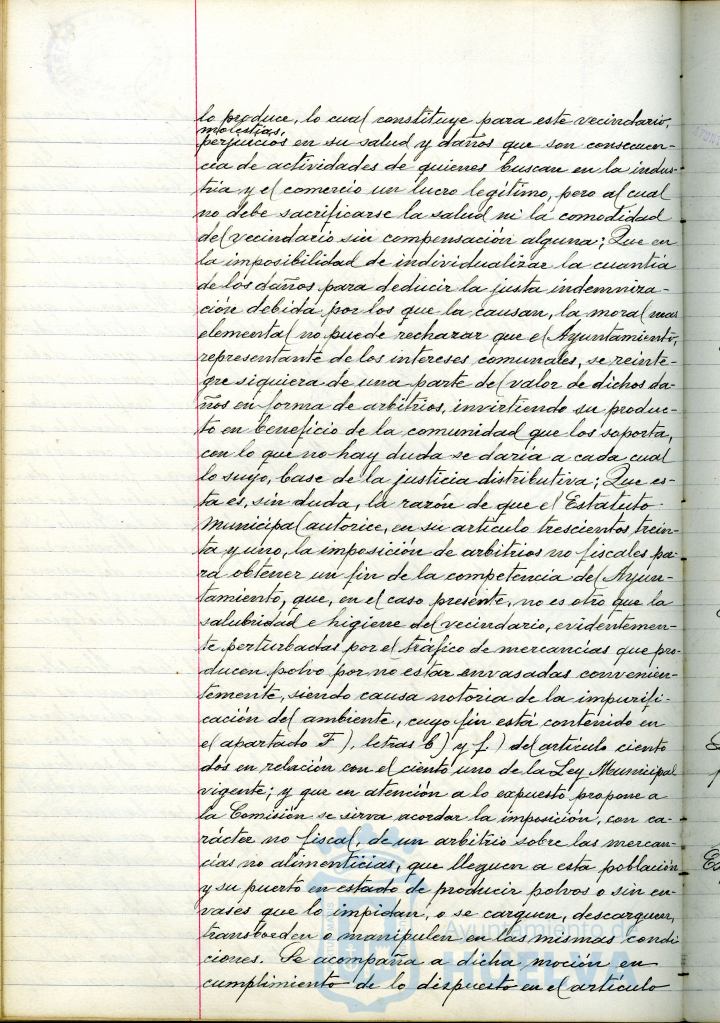 lo produce, lo cual constituye para este vecindario,
molestias,
perjuicios en su salud y daños que son consecuen-
cia de actividades de quienes buscan en la indus-
tria y el comercio un lucro legítimo, pero al cual
no debe sacrificarse la salud ni la comodidad
del vecindario sin compensación alguna; Que en
la imposibilidad de individualizar la cuantía
de los daños para deducir la justa indemniza-
ción debida por los que la causan, la moral mas
elemental no puede rechazar que el Ayuntamiento,
representante de los intereses comunales, se reinte-
gre siquiera de una parte del valor de dichos da-
ños en forma de arbitrios, invirtiendo su produc-
to en beneficio de la comunidad que los soporta,
con lo que no hay duda se daría a cada cual
lo suyo, base de la justicia distributiva; Que es-
ta es, sin duda, la razón de que el Estatuto
Municipal autorice, en su artículo trescientos trein-
ta y uno, la imposición de arbitrios no fiscales pa-
ra obtener un fin de la competencia del Ayun-
tamiento, que, en el caso presente, no es otro que la
salubridad e higiene del vecindario, evidentemen-
te perturbadas por el tráfico de mercancias que pro-
ducen polvo por no estar envasadas convenien-
temente, siendo causa notoria de la impurifi-
cación del ambiente, cuyo fin está contenido en
el apartado F), letras b) y f) del artículo ciento
dos en relación con el ciento uno de la Ley Municipal
vigente; y que en atención a lo expuesto propone a
la Comisión se sirva acordar la imposición, con ca-
rácter no fiscal, de un arbitrio sobre las mercan-
cías no alimenticias, que lleguen a esta población
y su puerto en estado de producir polvos o sin en-
vases que lo impidan, o se carguen, descarguen,
transborden o manipulen en las mismas condi-
ciones. Se acompaña a dicha moción en
cumplimiento de lo dispuesto en el artículo
Ayuntamiento de
HUELVA